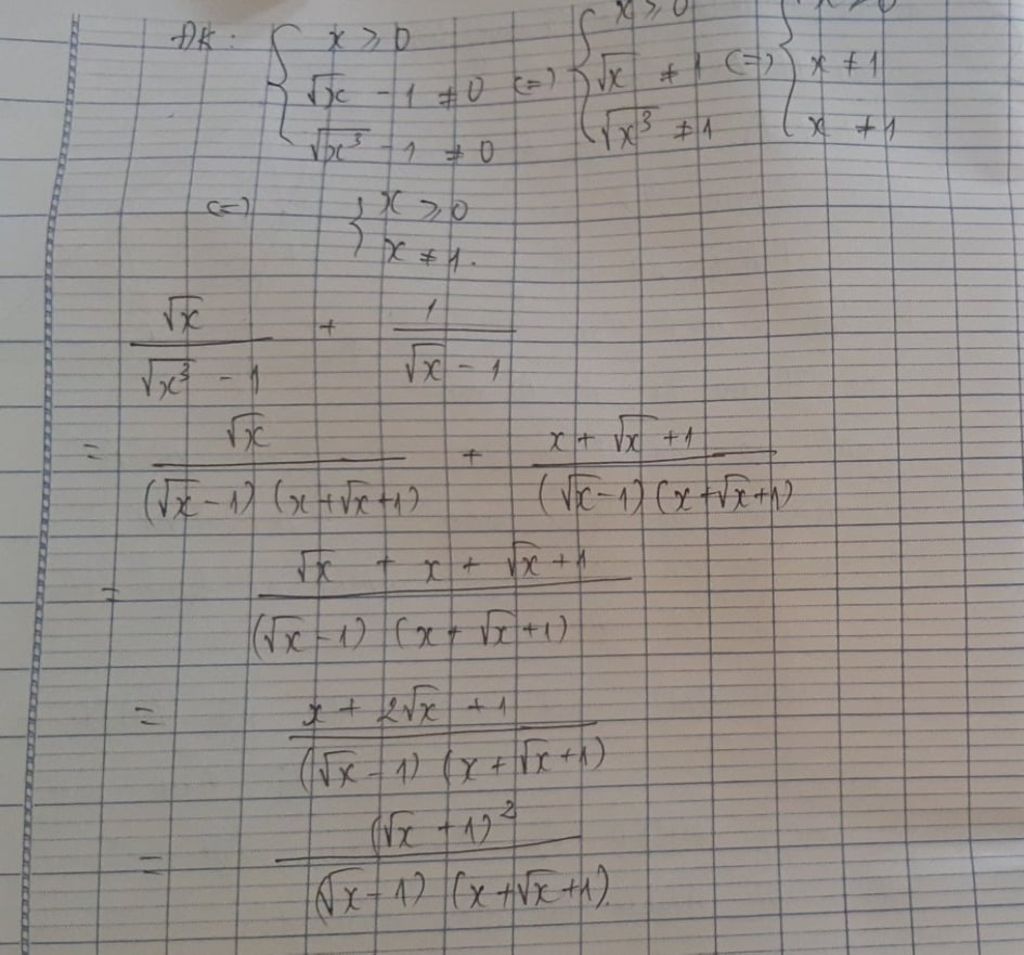 ĐK: { x ≥ 0 <=> { x ≥ 0 <=> { x ≥ 0
√x - 1 ≠ 0 √x ≠ 1 x ≠ 1
√x³ - 1 ≠ 0 √x³ ≠ 1 x ≠ 1
<=> { x ≥ 0
x ≠ 1.
√x / (√x³ - 1) + 1 / (√x - 1)
= √x / ((√x - 1) (x + √x + 1)) + (x + √x + 1) / ((√x - 1) (x + √x + 1))
= (√x + x + √x + 1) / ((√x - 1) (x + √x + 1))
= (x + 2√x + 1) / ((√x - 1) (x + √x + 1))
= (√x + 1)² / ((√x - 1) (x + √x + 1)).